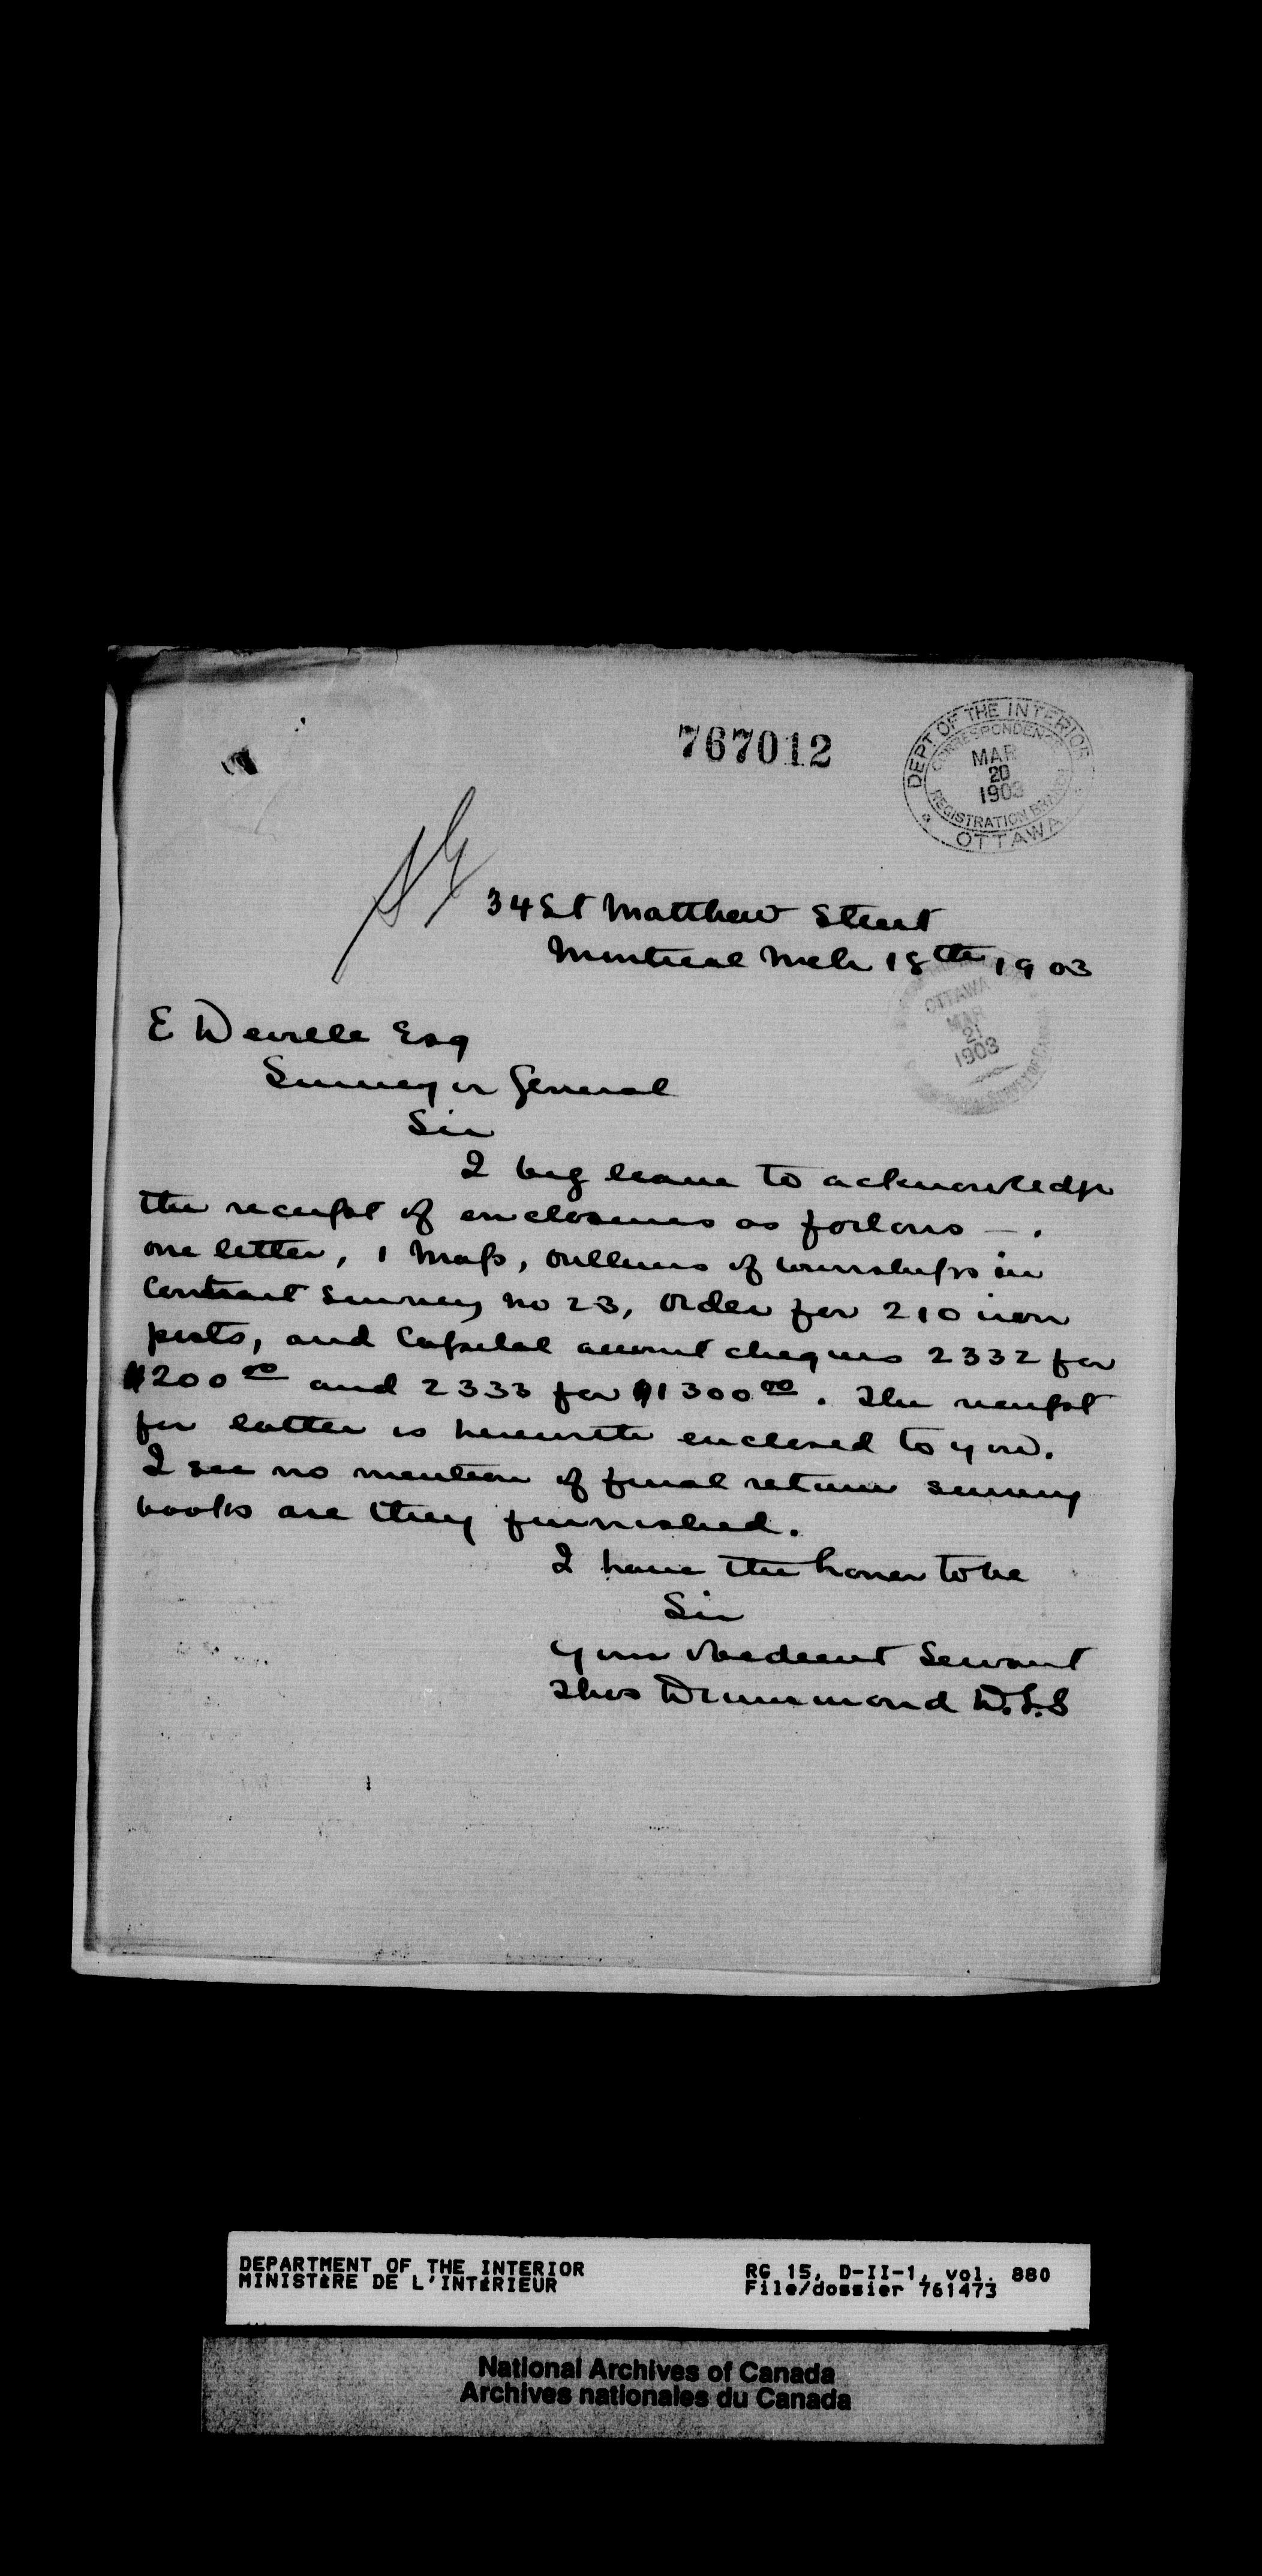 767012
DEPT OF THE INTERIOR
CORRESPONDENCE
MAR
20
1903
REGISTRATION BRANCH
OTTAWA
34 St Matthew Street
Montreal Mch 18th 1903
OTTAWA
MAR
21
1903
E Deville Esq
Surveyor General
Sir
I beg leave to acknowledge
the receipt of enclosures as follows — .
one letter, 1 Map, outlines of townships in
Contract Survey no 23, Order for 210 iron
posts, and Capital account cheques 2332 for
$200 00 and 2333 for $1300 00. The receipt
for latter is herewith enclosed to you.
I see no mention of final return survey
books are they furnished.
I have the honor to be
Sir
Your obedient Servant
Thos Drummond D.L.S
DEPARTMENT OF THE INTERIOR
MINISTÈRE DE L'INTÉRIEUR
RG 15, D-II-1, vol. 880
File/dossier 761473
National Archives of Canada
Archives nationales du Canada